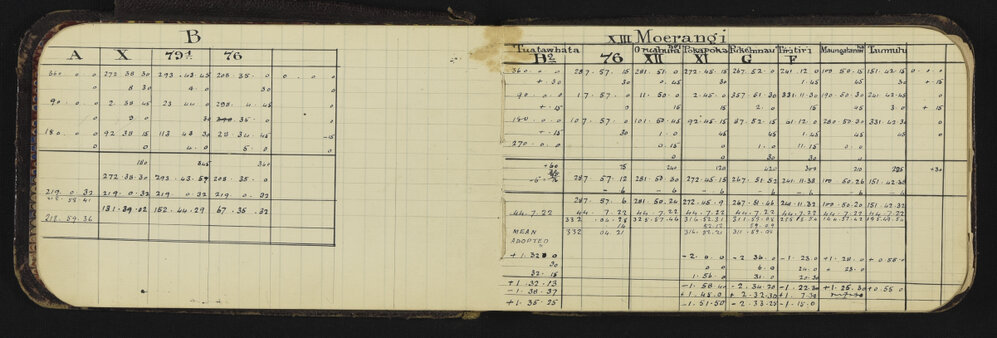 B
A X 79¹ 76
360 . 0 . 0 272 38 30 293 . 43 . 45 208 . 35 . 0 0 . 0 . 0
0 8 30 4 . 0 30 0
90 . 0 . 0 2 . 38 45 23 44 0 298 . 4 . 45
0 9 0 30 35 . 0 0
180 . 0 . 0 92 38 15 113 43 30 28 . 34 . 45 -15
0 0 4 . 0 5 . 0 0
180 345 360
272 . 38 . 30 293 . 43 . 59 208 . 35 . 0
219 . 0 . 32 219 . 0 . 32 219 . 0 . 32 219 . 0 . 32
131 . 39 . 02 152 . 44 . 29 67 . 35 . 32
218 . 59 . 36
XIII Moerangi
Tuatawhata Oruahura Pokapoka Pukehinau Tiritiri Maungatawa Taumutu
H² 76 XII XI G F
360 . 0 . 0 287 . 57 . 15 281 . 51 . 0 272 . 45 . 15 267 . 52 . 0 241 . 12 . 0 100 . 50 . 15 151 . 42 . 15 0 . 0 . 0
+ . 30 30 0 . 45 30 1 . 45 45 30 + 15
90 . 0 . 0 17 . 57 . 30 11 . 50 . 0 2 . 45 . 0 357 . 51 . 30 331 . 11 . 30 190 . 50 . 30 241 . 42 . 45 0
+ . 15 0 15 15 2 . 0 15 45 3 . 0 + 15
180 . 0 . 0 107 . 57 . 0 101 . 50 . 45 92 . 45 . 15 87 . 52 . 15 61 . 12 . 0 280 . 50 . 30 331 . 42 . 30 0
+ . 15 30 1 . 0 45 45 1 . 45 45 45 0
270 . 0 . 0 0 . 15 0 1 . 0 11 . 15 0 . 0
0 0 30 30 0
+60 75 240 120 420 304 210 225 +30
287 . 57 . 12 281 . 50 . 30 272 . 45 . 15 267 . 51 . 52 241 . 11 . 38 100 . 50 . 26 151 . 42 . 38
- 6 - 6 - 6 - 6 - 6 - 6 - 6
287 . 57 . 6 281 . 50 . 24 272 . 45 . 9 267 . 51 . 46 241 . 11 . 32 100 . 50 . 20 151 . 42 . 32
44 . 7 . 22 44 . 7 . 22 44 . 7 . 22 44 . 7 . 22 44 . 7 . 22 44 . 7 . 22 44 . 7 . 22 44 . 7 . 22
332 . 04 . 28 325 . 57 . 46 316 . 52 . 31 311 . 59 . 08
14 52.12 59.09
MEAN 332 04 . 21 316 . 52 . 21 311 . 59 . 09
ADOPTED
+ 1 . 32 0 - 2 . 0 0 - 2 36 . 0 - 1 . 23 . 0 + 1 . 28 . 0 + 0 . 55 . 0
30 0 0 6 . 0 24 . 0 + 23 . 0
32 . 15 1 . 56 . 0 31 . 0 20 . 30
+ 1 . 32 . 13 - 1 . 58 . 40 - 2 . 34 . 20 - 1 . 22 . 30 + 1 . 25 . 30 + 0 . 55 . 0
- 1 . 38 . 37 + 1 . 45 . 0 + 2 . 32 . 30 + 1 . 7 . 30
+ 1 . 35 . 25 - 1 . 51 . 50 - 2 . 33 . 25 - 1 . 15 . 0